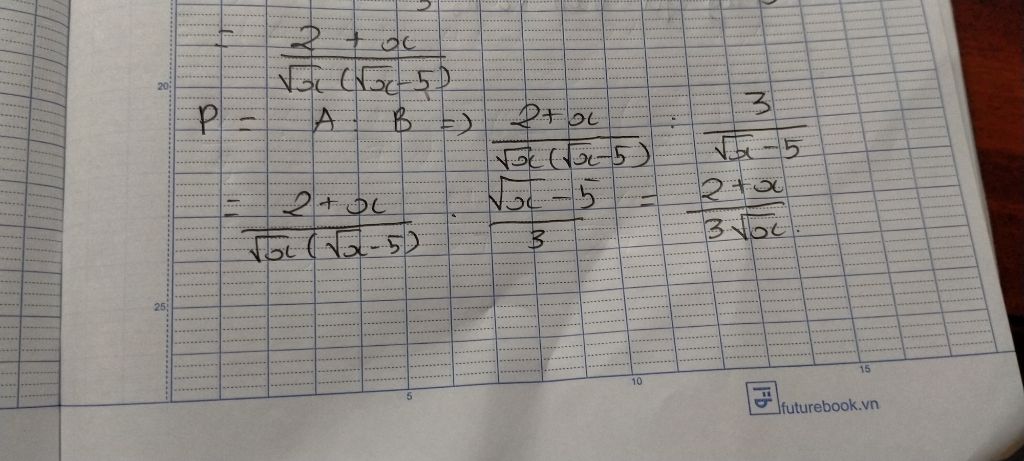 = (2 + x)/(√x (√x - 5))
20
P = A : B => (2 + x)/(√x (√x - 5)) : 3/(√x - 5)
= (2 + x)/(√x (√x - 5)) . (√x - 5)/3 = (2 + x)/(3√x).
25
5 10 15
futurebook.vn